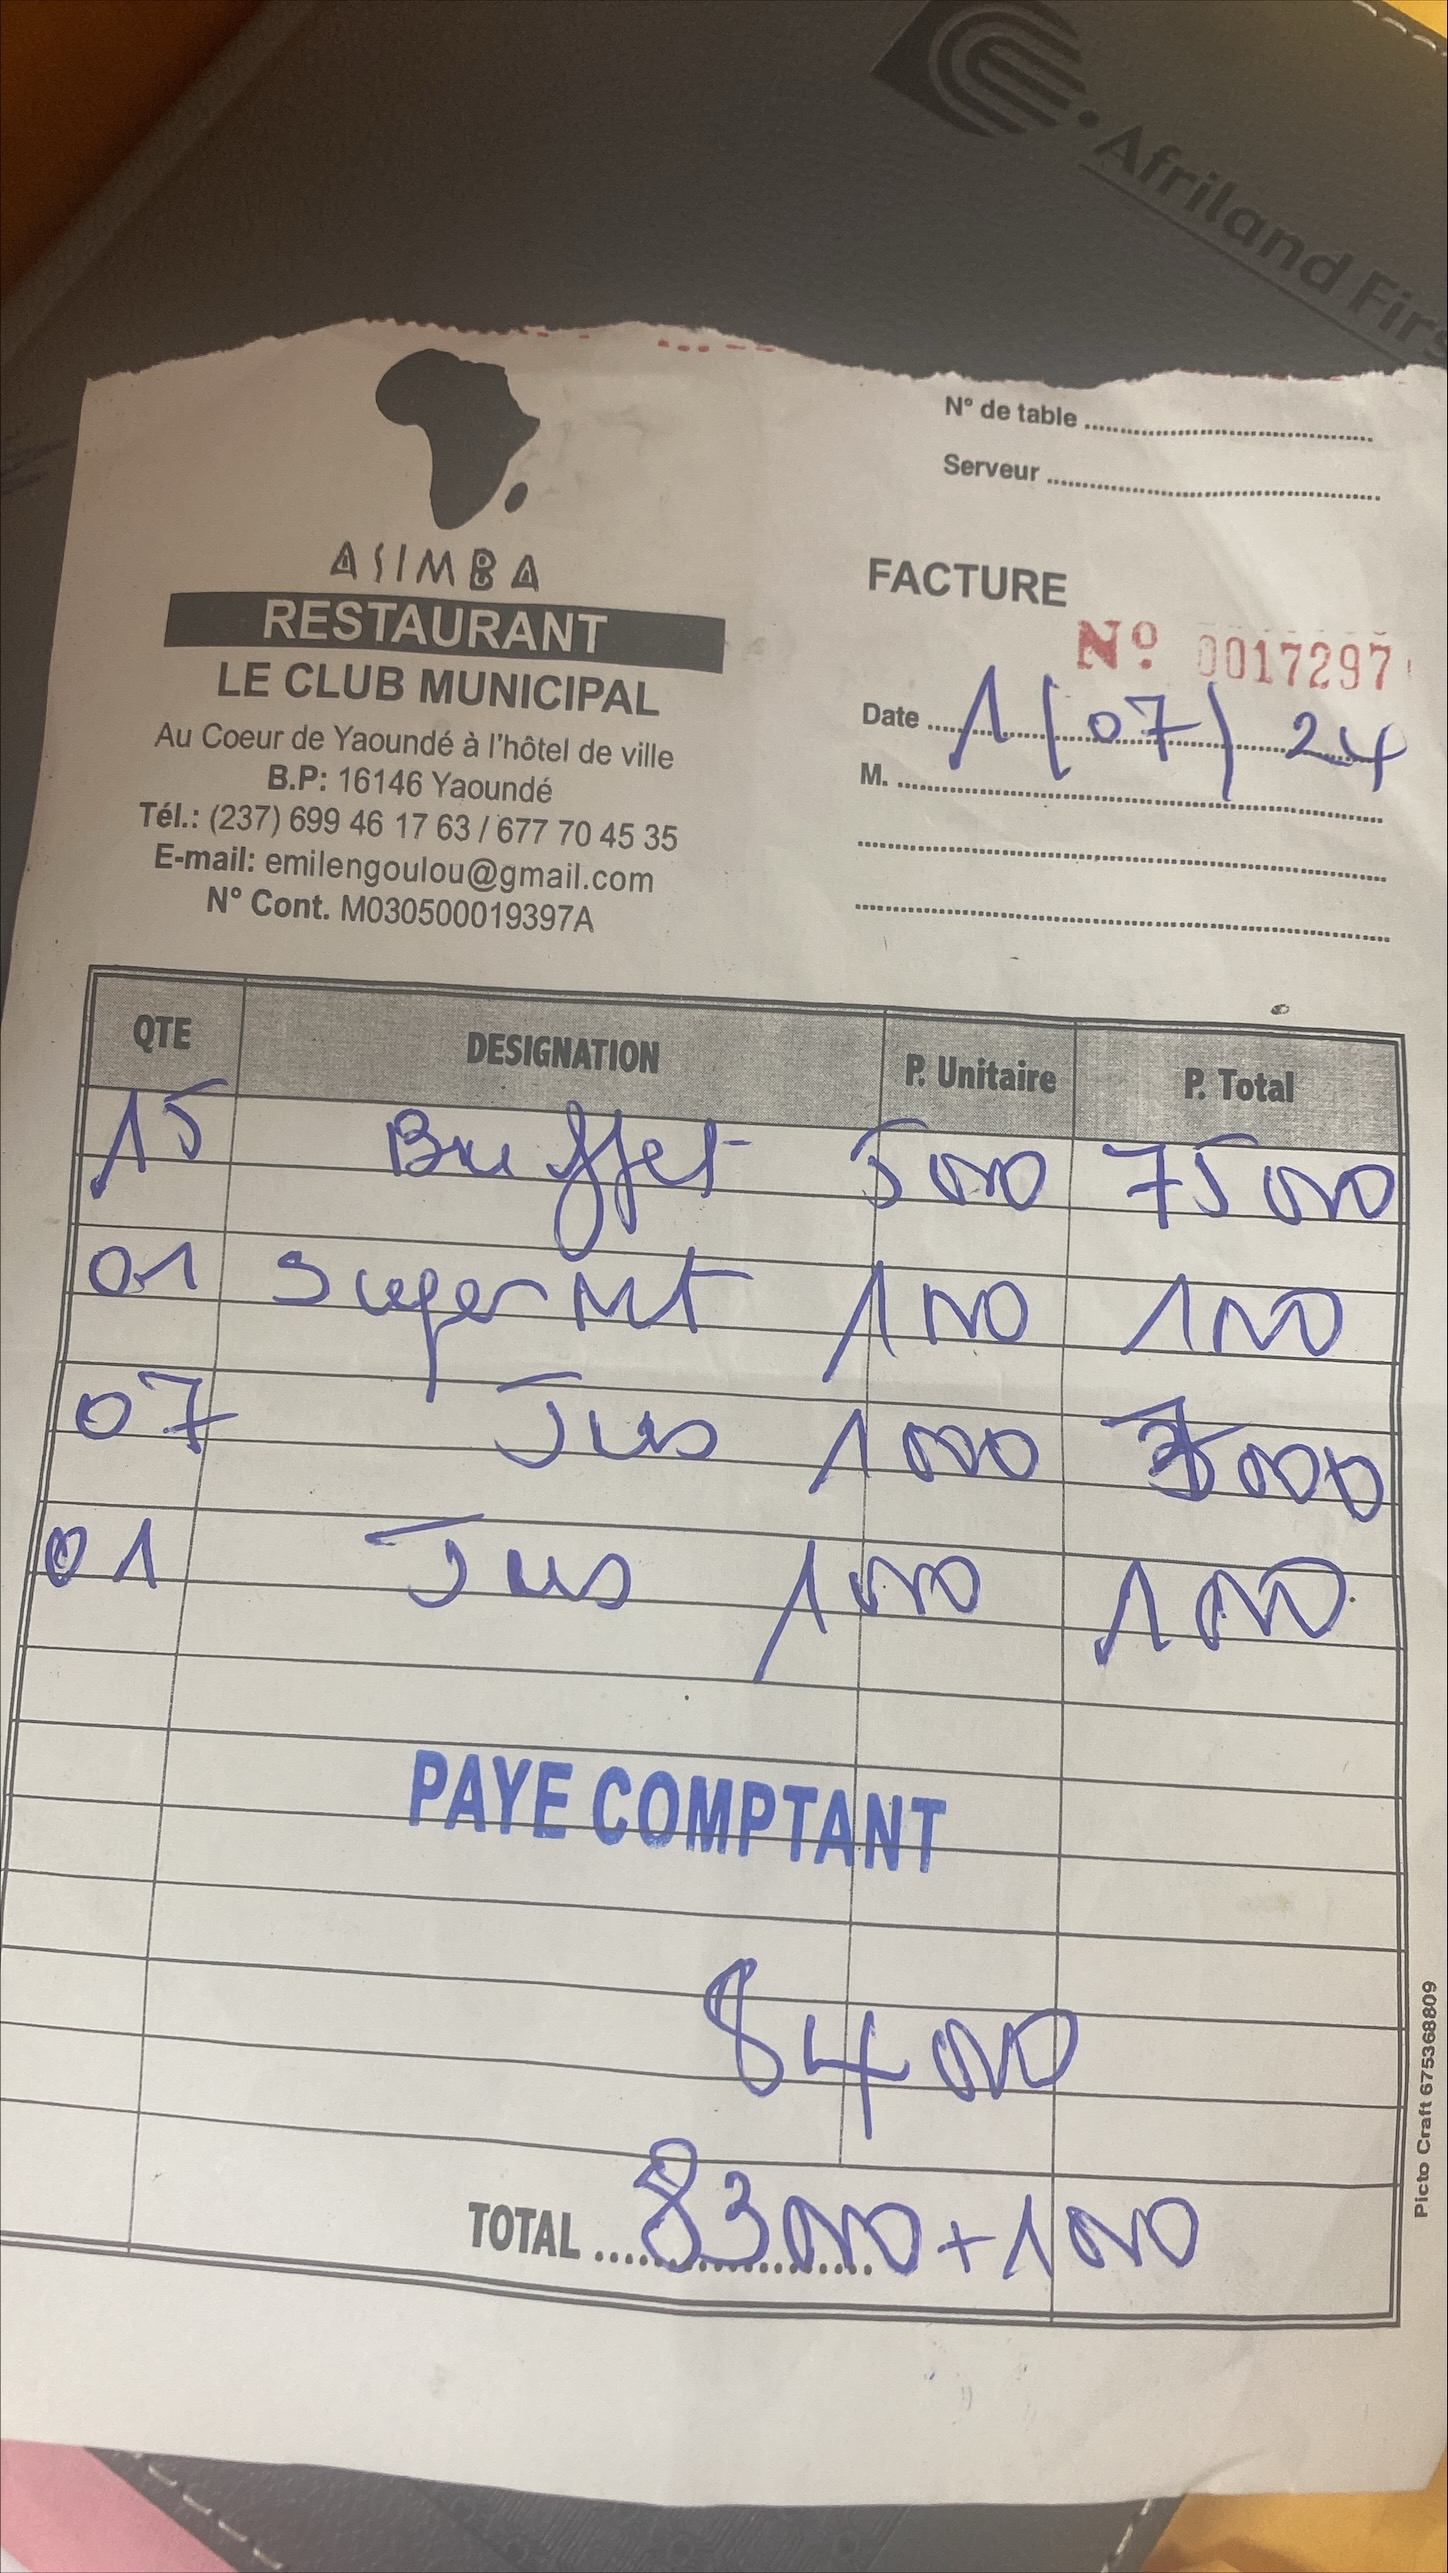 Afriland Firs
N° de table
Serveur
ASIMBA
RESTAURANT
LE CLUB MUNICIPAL
Au Coeur de Yaoundé à l'hôtel de ville
B.P: 16146 Yaoundé
Tél.: (237) 699 46 17 63 / 677 70 45 35
E-mail: emilengoulou@gmail.com
N° Cont. M030500019397A
FACTURE
No 0017297
Date 1/07/24
M.
QTE DESIGNATION P. Unitaire P. Total
15 Buffet 5000 75000
01 1000 1000
07 Jus 1000 7000
01 Jus 1000 1000
PAYE COMPTANT
84000
TOTAL 83000+1000
Picto Craft 675368809